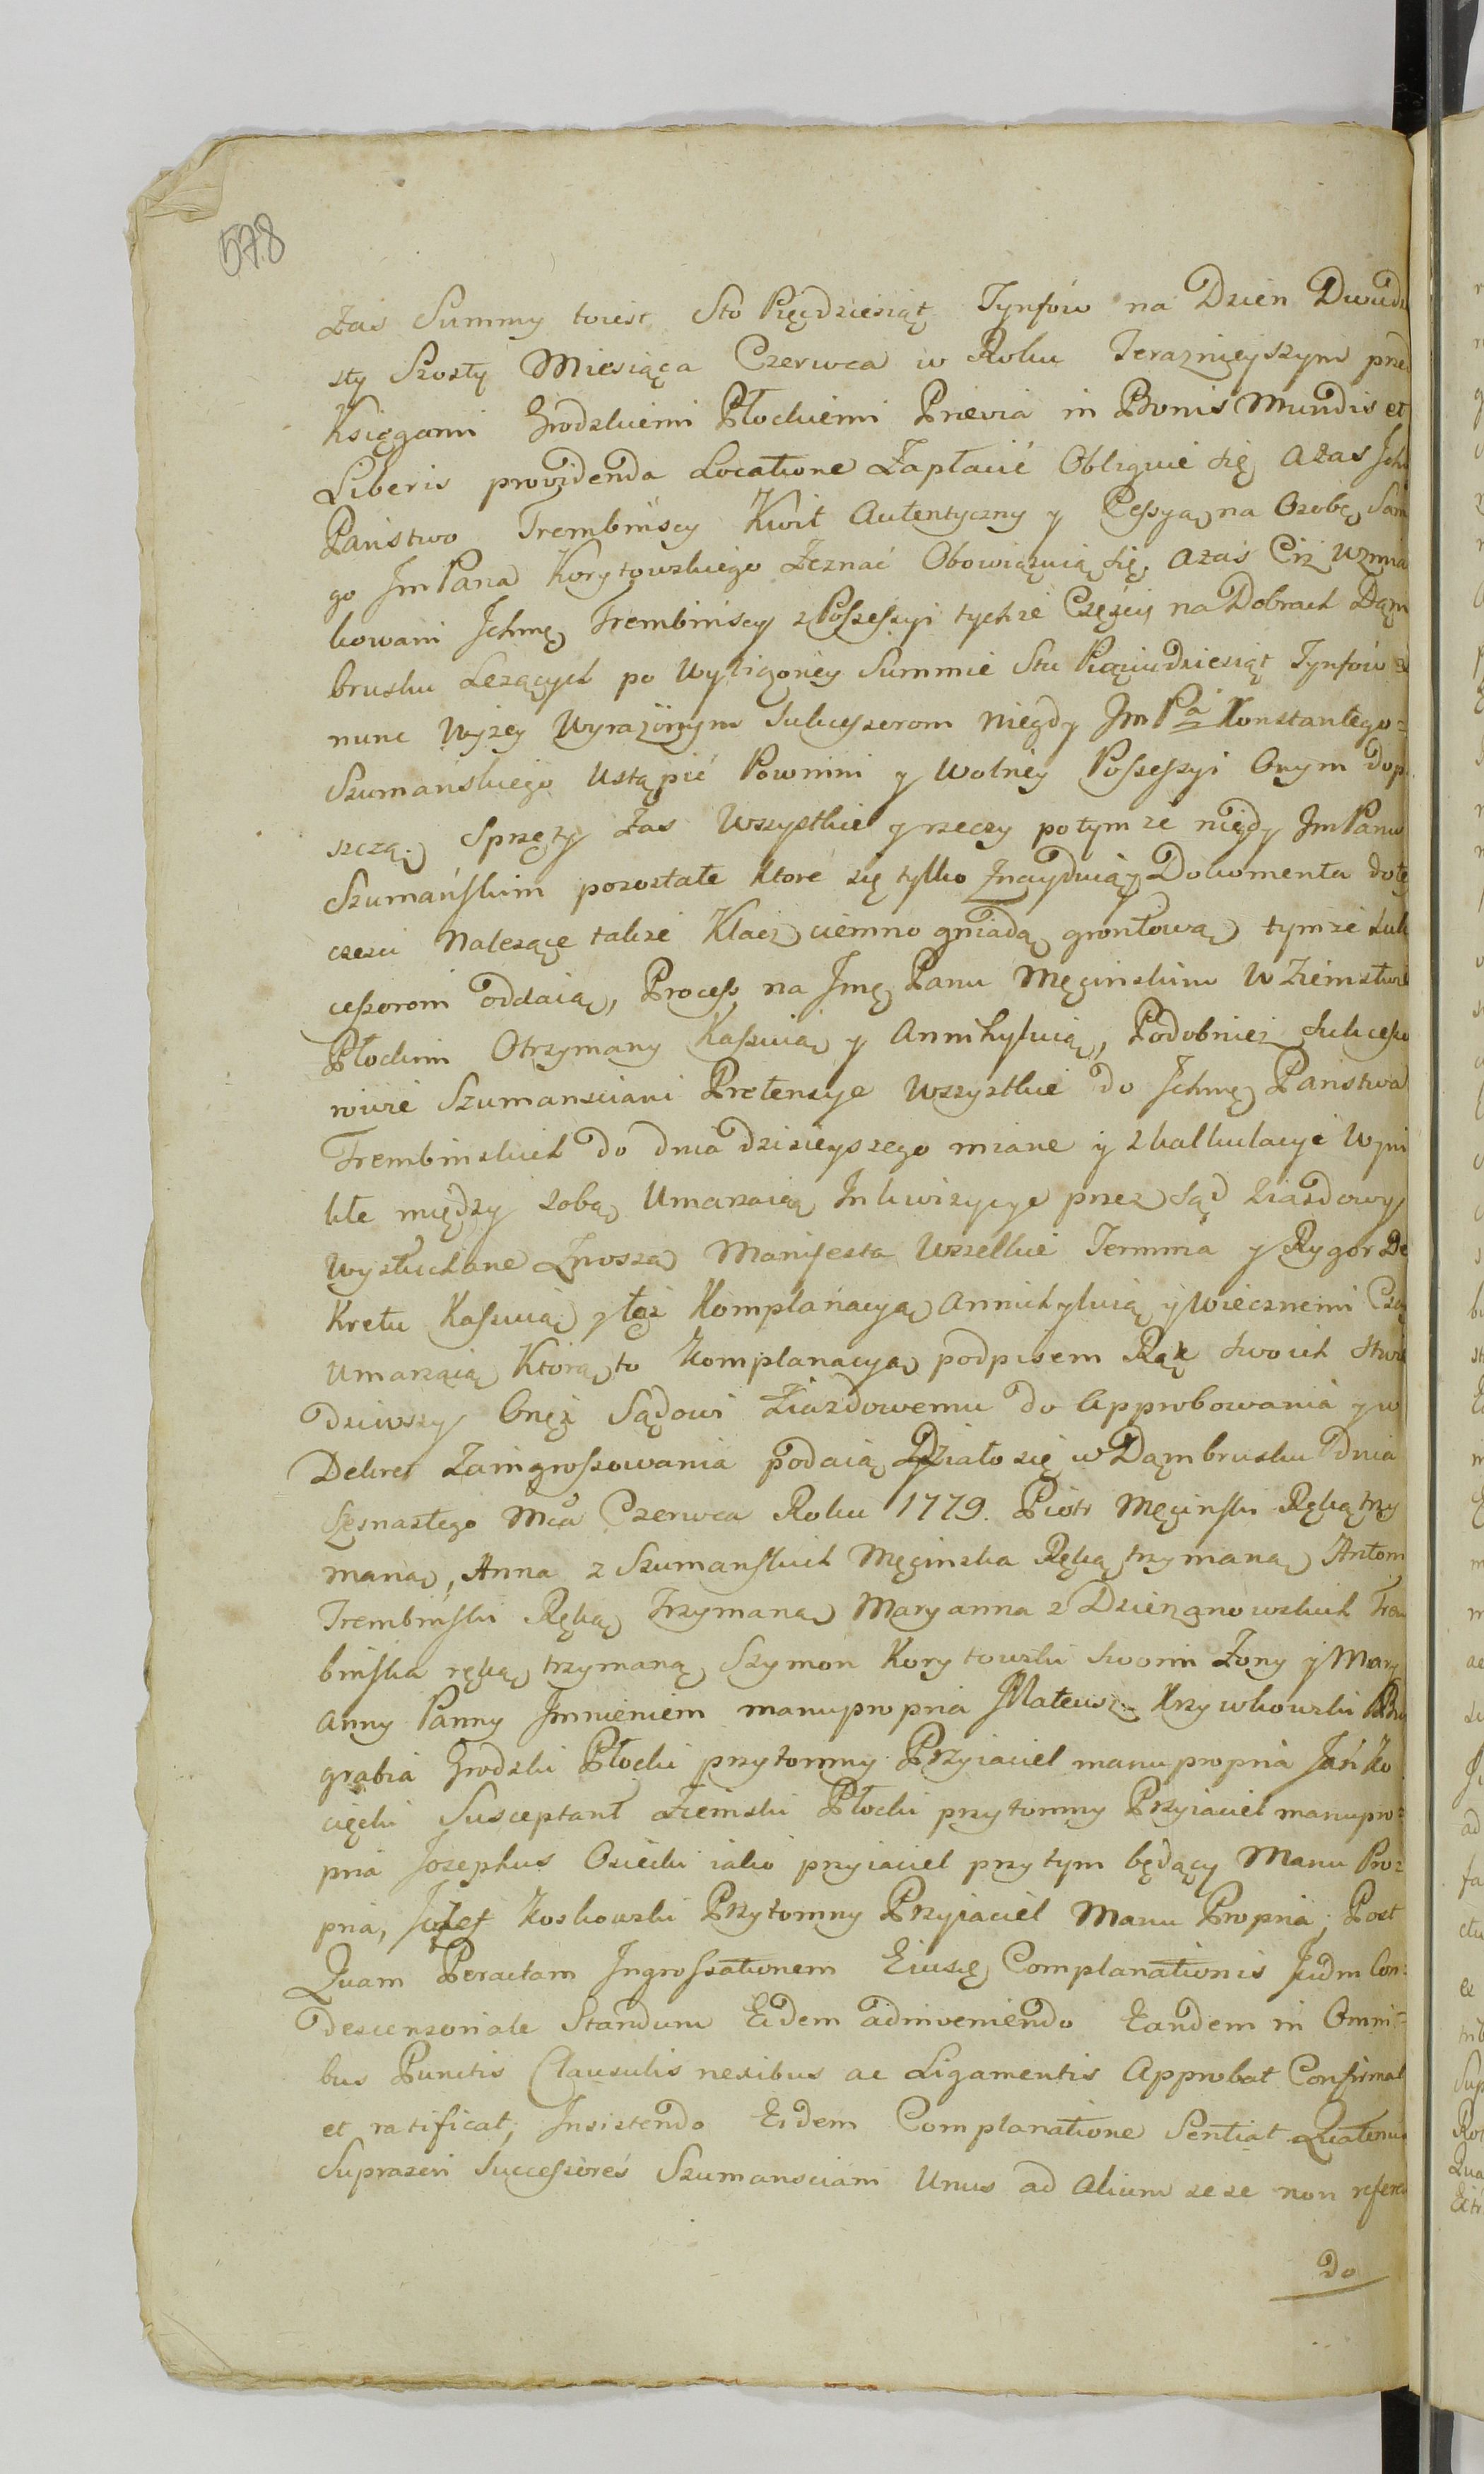 578
Zas Summy toiest Sto Pięcdziesiąt Tynfow na Dzien Dwudz
sty Szosty Miesiąca Czerwca w Roku Teraznieyszym prze
Księgami Grodzkiemi Płockiemi Prævia in Bonis Mundis et
Liberis providenda Locatione Zapłacić Obliguie się azas Ich
Państwo Trembińscy Kwit Autentyczny y Cessyą na Osobę Sam
go Jm Pana Korytowskiego Zeznać Obowiązuią się, azaś Ciż wzmia
kowani Ichmę Trembinscy z Possessyi tychże Częsci na Dobrach Dąm
brusku Leżących po Wyliczoney Summie Stu Piąciudziesiąt Tynfow
nunc Wyzey Wyrazonym Sukcessorom niegdy Jm Pa Konstantego
Szumańskiego Ustąpić Powinni y Wolney Possessyi Onym dop
szczą. Sprzęty zas Wszystkie y rzeczy po tymże niegdy Jm Panu
Szumańskim pozostałe ktore się tylko znayduią y Dokumenta do tey
czesci Nalezące takze Klacz ciemno gniadą grontową tymże Suk
cessorom oddaią, Process na Jmę Panu Męcinskim w Ziemstwie
Płockim Otrzymany Kassuią y Annihyluią, Podobniez Sukcesso
rowie Szumansciani Pretensye Wszystkie do Ichmę Państwa
Trembinskich do dnia dzisieyszego miane y z kalkulacye Wyni
kłe między sobą Umarzaią Inkwizycye przez Sąd Ziazdowy
Wysłuchane Znoszą Manifesta Wszelkie Termina y Rygor De
kretu Kassuią y tąż Komplanacyą Annichyluią y wiecznemi Czasy
Umarzaią Którą to Komplanacyą podpisem Rąk Swoich Stwier
dziwszy Onęż Sądowi Ziazdowemu do Approbowania y w
Dekret Zaingrossowania podaią Działo się w Dąmbrusku Dnia
Szesnastego Mca Czerwca Roku 1779. Piotr Męcinski Ręką trzy
maną, Anna z Szumanskich Męcinska Ręką trzymaną Antoni
Trembiński Ręką Trzymaną Maryanna z Dzierzanowskich Trem
binska ręką trzymaną Szymon Korytowski Swoim Zony y Mary
anny Panny Imnieniem manupropria Mateusz Krzywkowski Bur
grabia Grodzki Płocki przytomny Przyiaciel manu propria Jan Ko
cięcki Susceptant Ziemski Płocki przytomny Przyiaciel manupro
pria Josephus Osiecki iako przyiaciel przytym będący Manu Pro
pria, Jozef Koskowski Przytomny Przyiaciel Manu Propria; Post
Quam Peractam Ingrossationem Eiusę Complanationis Judm Con
descensoriale Standum Eidem adinveniendo Eandem in Omni
bus Punctis Clausulis nexibus ac Ligamentis Approbat Confirmat
et ratificat; Insistendo Eidem Complanatione Sentiat Quatenus
Suprazeri Successores Szumansciani Unus ad Alium sese non referen
do